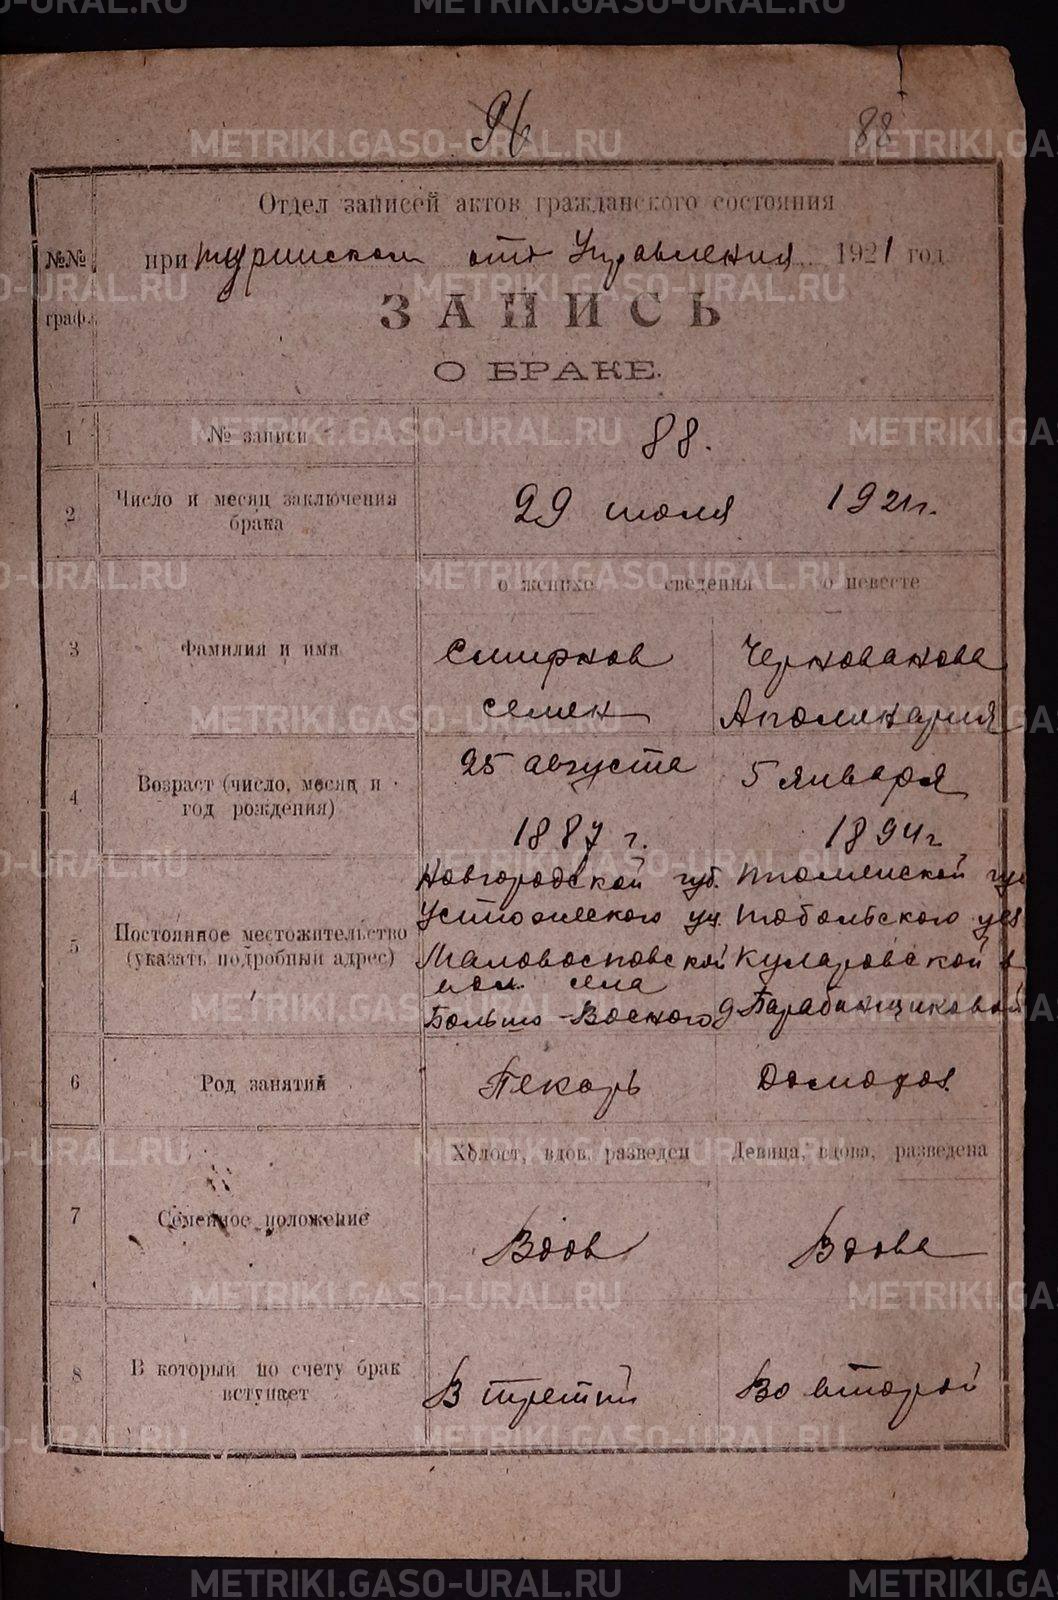 96
88
Отдел записей актов гражданского состояния
при туринском отд Управления 1921 год
№№ граф.
ЗАПИСЬ
О БРАКЕ.
1 № записи 88.
2 Число и месяц заключения брака 29 июля 1921 г.
о женихе сведения о невесте
3 Фамилия и имя
Смирнов Чернованова
Семен Аполинария
4 Возраст (число, месяц и год рождения)
25 августа 5 января
1887 г. 1894 г
5 Постоянное местожительство (указать подробный адрес)
Новгородской губ. тюменской гу
уез. тобольского уез
Куларовской в
вол. села
Больше- д Барабанщиковой
6 Род занятий Пекарь Домохоз.
Холост, вдов, разведен Девица, вдова, разведена
7 Семейное положение Вдов Вдова
8 В который по счету брак вступает В третий Во второй
METRIKI.GASO-URAL.RU